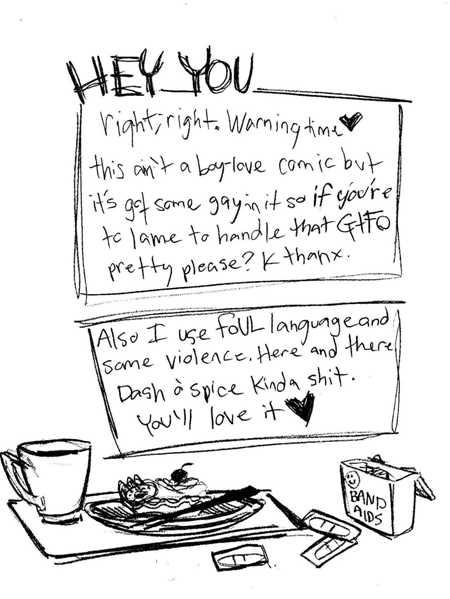 HEY YOU
right, right. Warning time
this ain't a boy-love comic but
it's got some gay in it so if you're
to lame to handle that GTFO
pretty please? K thanx.
Also I use foUL language and
some violence. Here and there
Dash o' spice kinda shit.
You'll love it
BAND
AIDS